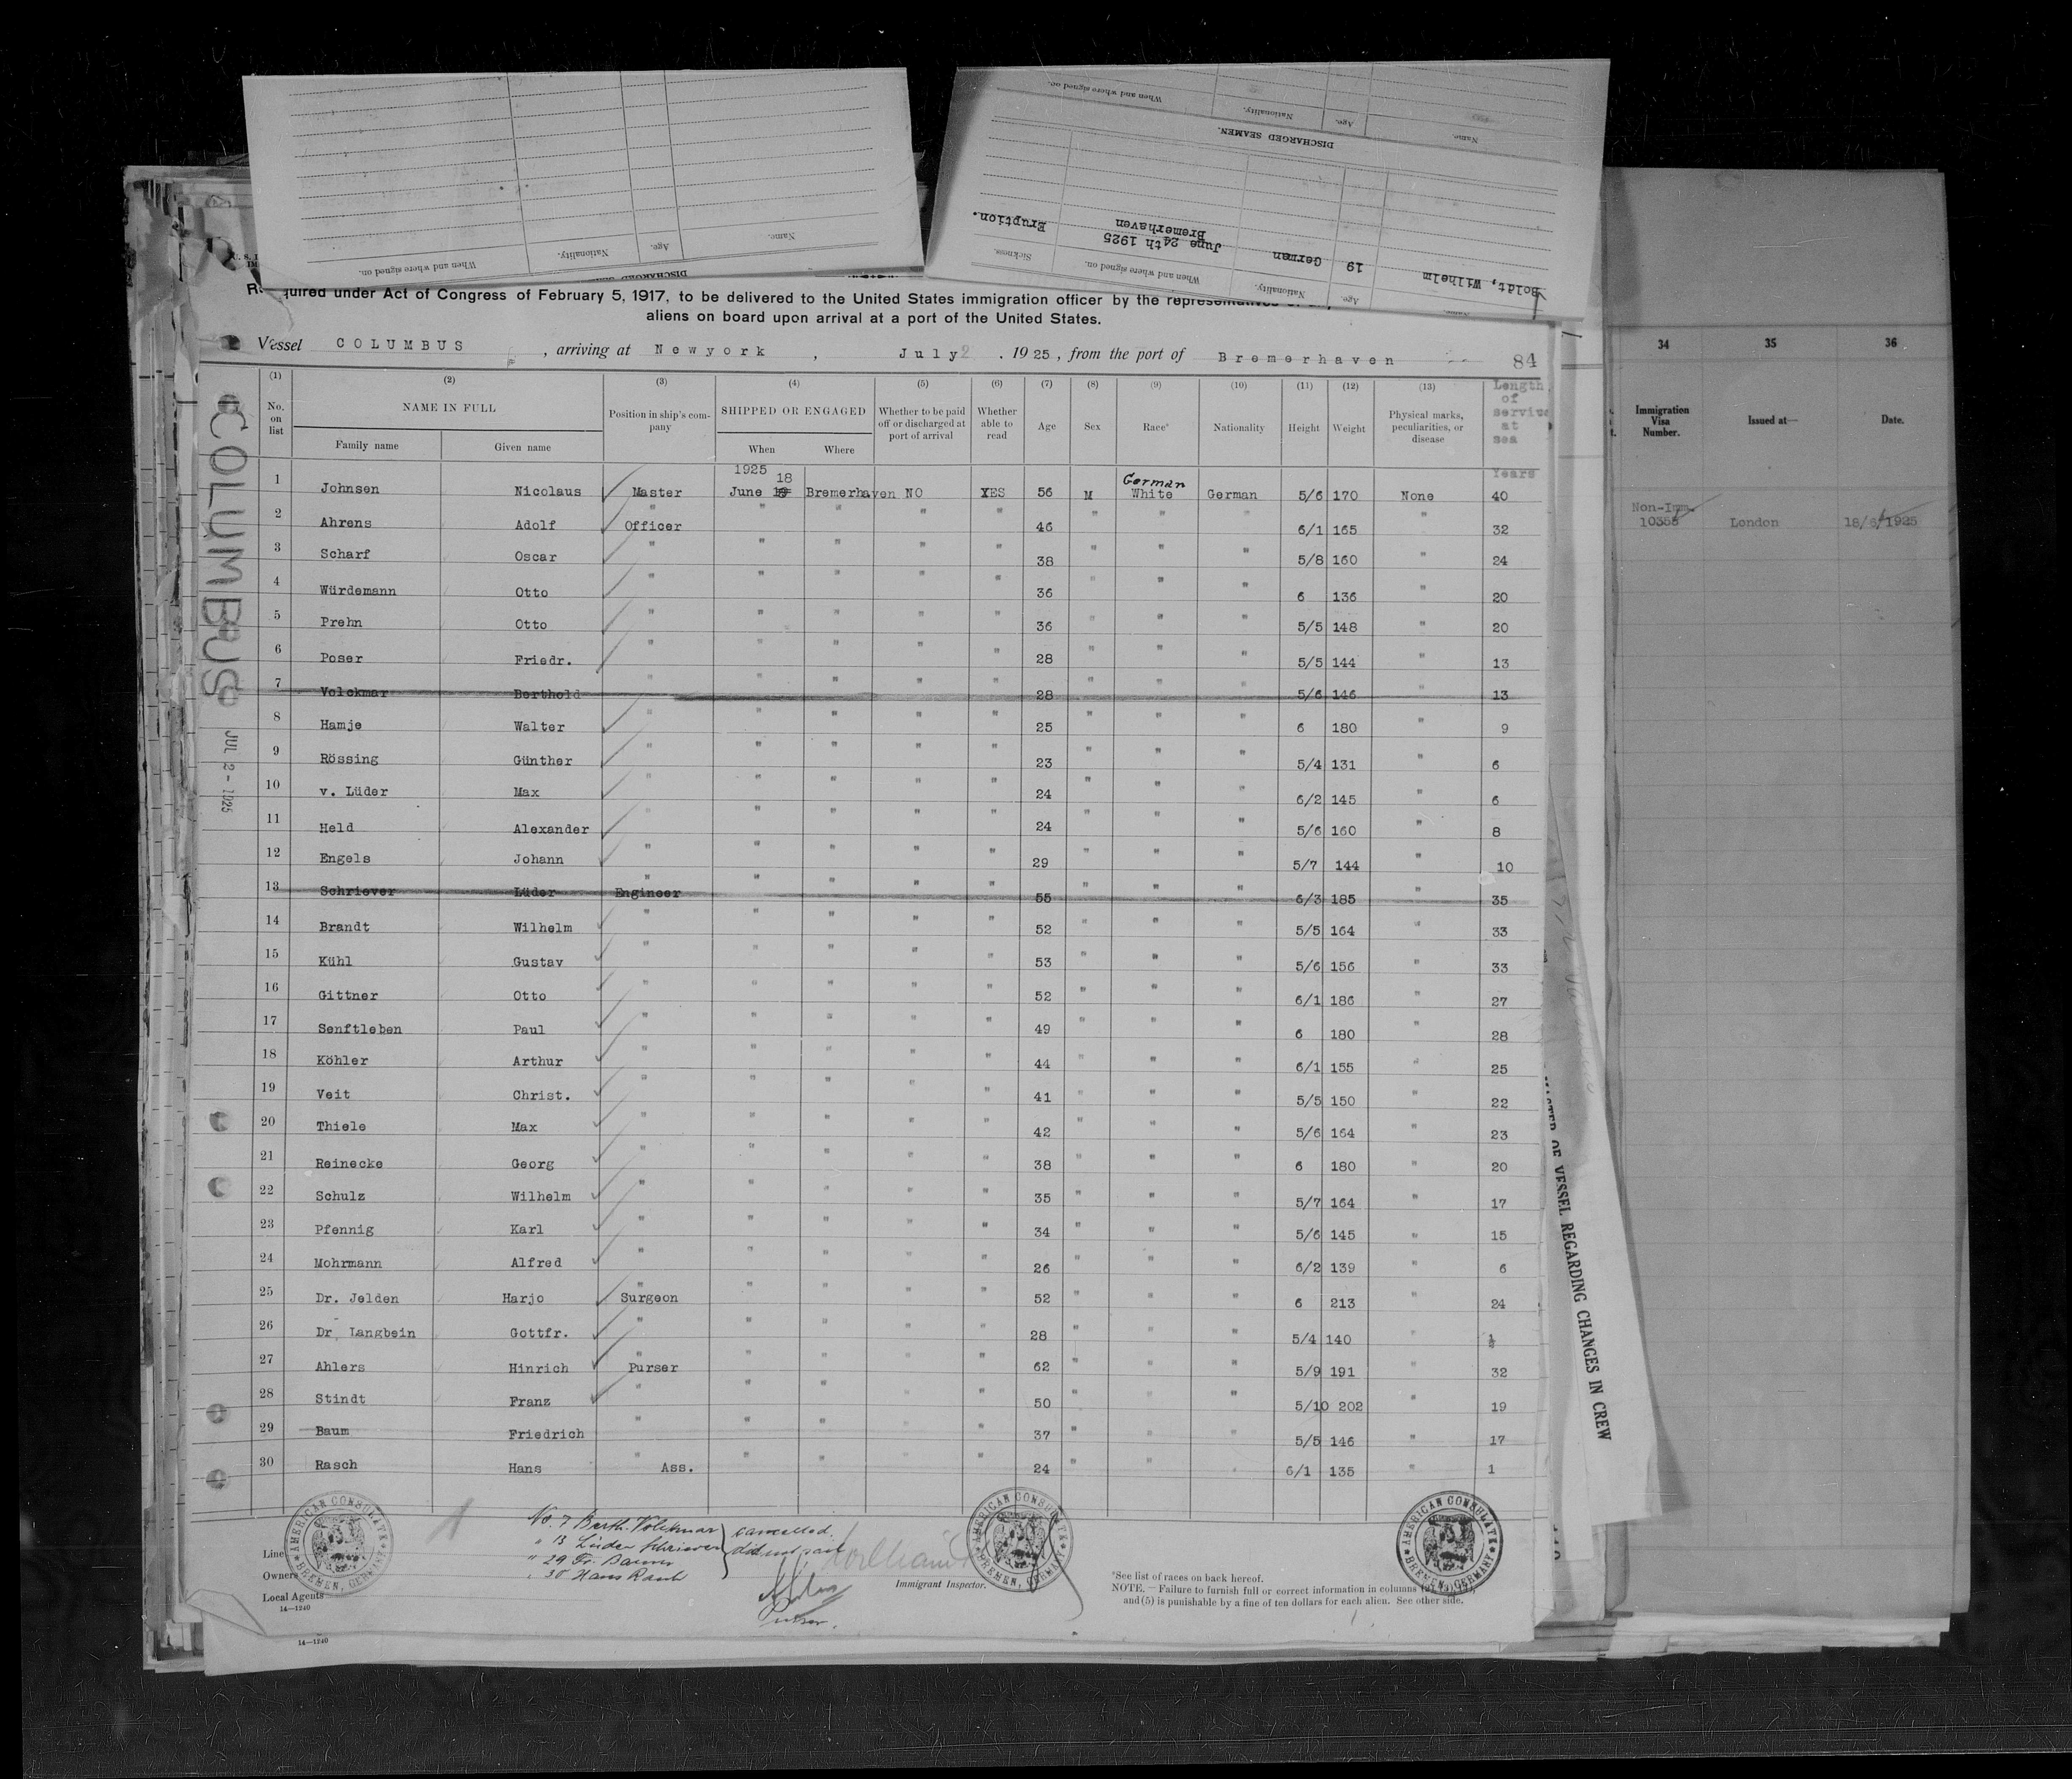 Name.
Age.
Nationality.
When and where signed on.
DISCHARGED
Name.
Age.
Nationality.
When and where signed on.
DISCHARGED SEAMEN.
Name.
Age.
Nationality.
When and where signed on.
Sickness.
Boldt, Wilhelm 19 German June 24th 1925 Bremerhaven Eruption.
quired under Act of Congress of February 5, 1917, to be delivered to the United States immigration officer by the
aliens on board upon arrival at a port of the United States.
Vessel COLUMBUS , arriving at Newyork , July 2 . 1925 , from the port of Bremerhaven 84
(1) (2) (3) (4) (5) (6) (7) (8) (9) (10) (11) (12) (13) Length of service at sea
No. on list NAME IN FULL Position in ship's company SHIPPED OR ENGAGED Whether to be paid off or discharged at port of arrival Whether able to read Age Sex Race* Nationality Height Weight Physical marks, peculiarities, or disease
Family name Given name When Where
1925 18 German Years
1 Johnsen Nicolaus Master June Bremerhaven NO YES 56 M White German 5/6 170 None 40
2 Ahrens Adolf " Officer " " " " 46 " " " 6/1 165 " 32
3 Scharf Oscar " " " " " 38 " " " 5/8 160 " 24
4 Würdemann Otto " " " " " 36 " " " 6 136 " 20
5 Prehn Otto " " " " " 36 " " " 5/5 148 " 20
6 Poser Friedr. " " " " " 28 " " " 5/5 144 " 13
7 Volckmar Berthold " " " " " 28 " " " 5/6 146 " 13
8 Hamje Walter " " " " " 25 " " " 6 180 " 9
9 Rössing Günther " " " " " 23 " " " 5/4 131 " 6
10 v. Lüder Max " " " " " 24 " " " 6/2 145 " 6
11 Held Alexander " " " " " 24 " " " 5/6 160 " 8
12 Engels Johann " " " " " 29 " " " 5/7 144 " 10
13 Schriever Lüder " Engineer " " " " 55 " " " 6/3 185 " 35
14 Brandt Wilhelm " " " " " 52 " " " 5/5 164 " 33
15 Kühl Gustav " " " " " 53 " " " 5/6 156 " 33
16 Gittner Otto " " " " " 52 " " " 6/1 186 " 27
17 Senftleben Paul " " " " " 49 " " " 6 180 " 28
18 Köhler Arthur " " " " " 44 " " " 6/1 155 " 25
19 Veit Christ. " " " " " 41 " " " 5/5 150 " 22
20 Thiele Max " " " " " 42 " " " 5/6 164 " 23
21 Reinecke Georg " " " " " 38 " " " 6 180 " 20
22 Schulz Wilhelm " " " " " 35 " " " 5/7 164 " 17
23 Pfennig Karl " " " " " 34 " " " 5/6 145 " 15
24 Mohrmann Alfred " " " " " 26 " " " 6/2 139 " 6
25 Dr. Jelden Harjo " Surgeon " " " " 52 " " " 6 213 " 24
26 Dr. Langbein Gottfr. " " " " " 28 " " " 5/4 140 "
27 Ahlers Hinrich " Purser " " " " 62 " " " 5/9 191 " 32
28 Stindt Franz " " " " " 50 " " " 5/10 202 " 19
29 Baum Friedrich " " " " " 37 " " " 5/5 146 " 17
30 Rasch Hans " Ass. " " " " 24 " " " 6/1 135 " 1
No. 7 Berth. Volckmar
" 13 Lüder Schriever
" 29 Fr. Baum
" 30 Hans Rasch
cancelled.
did not sail
Purser.
Line
Owners
Local Agents
14—1240
14—1240
Immigrant Inspector.
*See list of races on back hereof.
NOTE.—Failure to furnish full or correct information in columns
and (5) is punishable by a fine of ten dollars for each alien. See other side.
AMERICAN CONSULATE BREMEN, GERMANY
AMERICAN CONSULATE BREMEN, GERMANY
AMERICAN CONSULATE BREMEN, GERMANY
COLUMBUS
JUL 2 - 1925
OF VESSEL REGARDING CHANGES IN CREW
34 35 36
Immigration Visa Number. Issued at— Date.
Non-Imm.
10358 London 18/6/1925